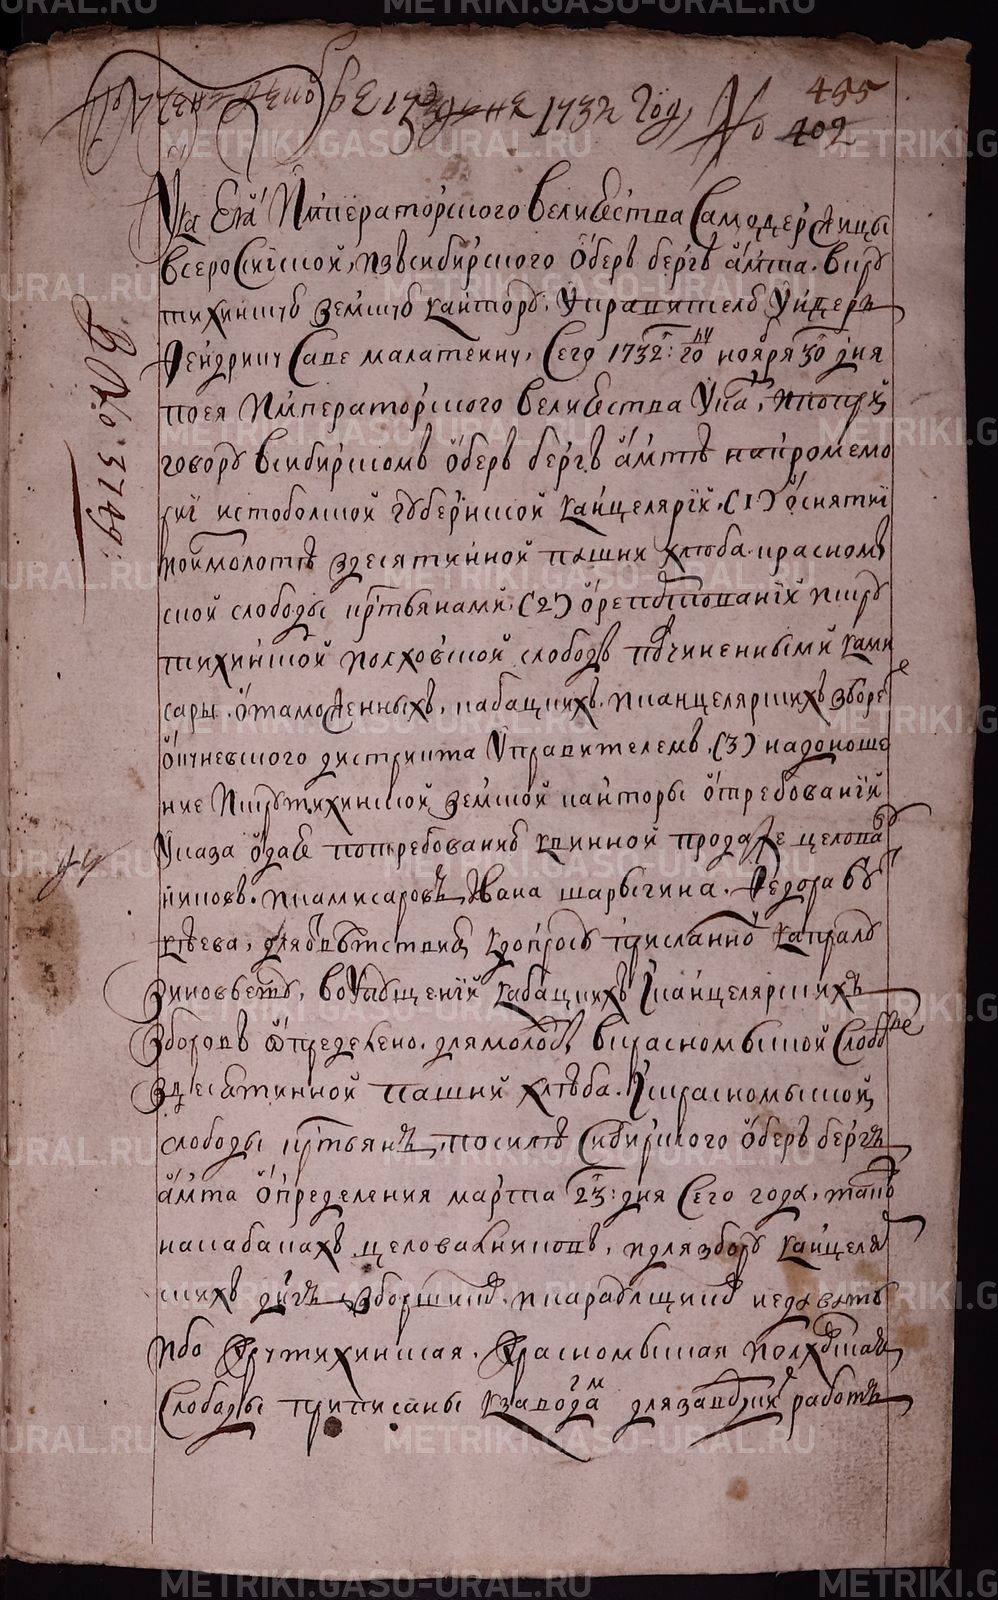 Получен декабря 17 дня 1732 году №
455
402
Указ Ея Императорского Величества Самодержицы
всеросийской, из сибирского обер берг амта. в кру
тихинскую земскую кантору, управителю ундер
Феидрику Саве Малаткину, Сего 1732: го году ноября 30 дня
по ея Императорского Величества указу, и по при
говору в сибирском обер берг амте на промемо
рии ис тоболской губернской канцелярии, (1) о снятки
и о молотбе з десятинной пашни хлеба красномы
ской слободы крестьянами, (2) о репортовании кру
тихинской и колховской слобод подчиненными ками
сары. о таможенных, кабацких, и канцелярских зборех
окуневского дистрикта управителем, (3) на доноше
ние крутихинской земской канторы о требовании
указа о даче по требованию к винной продаже целовал
ников, и камисаров Ивана Шарыгина, Федора
для ответствия к допросу присланной капралу
Зиновьеву, в упущении кабацких и канцелярских
зборов определено, для молотбы в красномыской слободе
з десятинной пашни хлеба, красномыской
слободы крестьян, по силе Сибирского обер берг
амта определения марта 23: дня Сего года, також
на кабаках целовалников, и для збору канцеляр
ских денег зборщиков, и карабелщиков не давать
ибо крутихинская, красномыская и колховская
Слободы приписаны к заводам для заводских работ
№ 3749:
METRIKI.GASO-URAL.RU